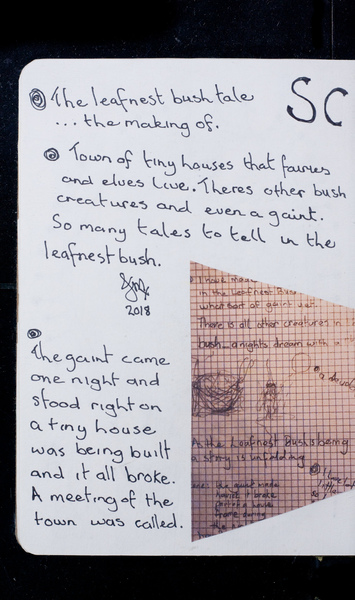 The leafnest bush tale
... the making of.
SC
Town of tiny houses that fairies
and elves live. Theres other bush
creatures and even a gaint.
So many tales to tell in the
leafnest bush.
2018
The gaint came
one night and
stood right on
a tiny house
was being built
and it all broke.
A meeting of the
town was called.
I have made
in the Leafnest Bush
what sort of gaint
There is all other creatures in
bush_a nights dream with a
As the Leafnest Bush is being
a story is unfolding